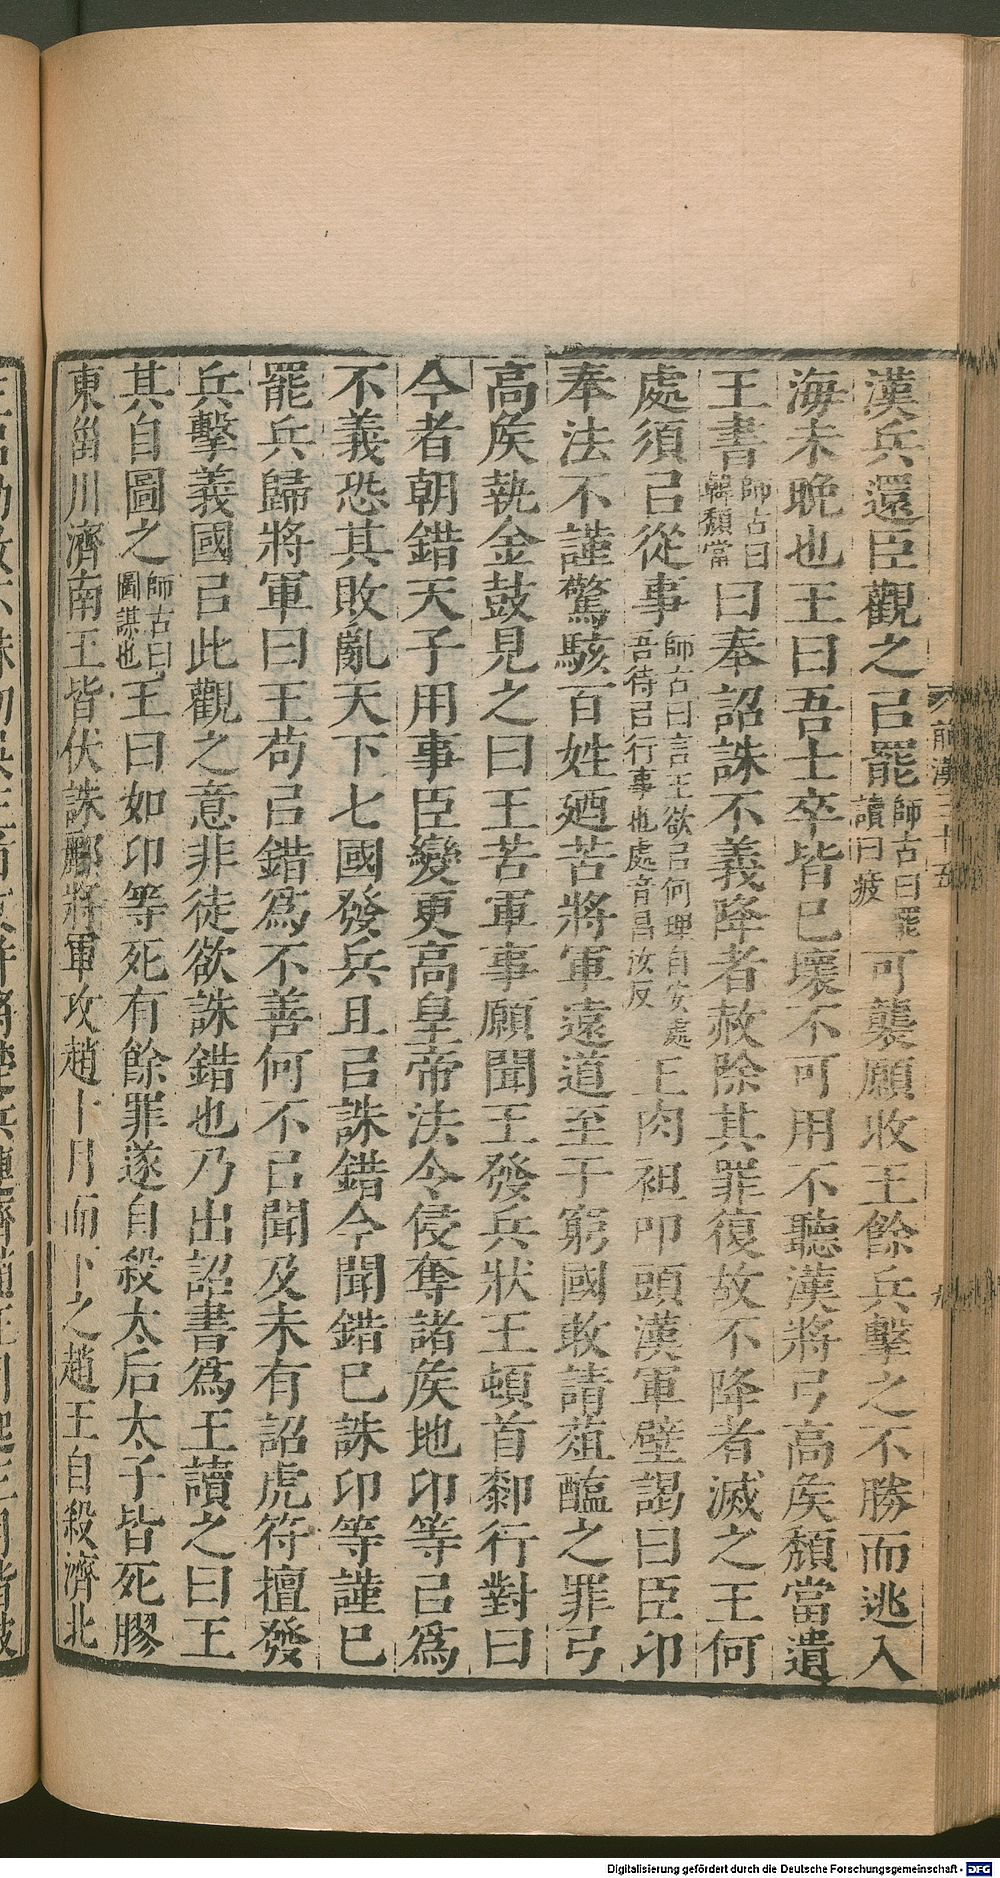 漢兵還臣觀之㠯罷師古曰罷讀曰疲可襲願收王餘兵擊之不勝而逃入
海未晚也王曰吾士卒皆已壞不可用不聽漢將弓高矦頽當遺
王書師古曰韓頽當曰奉詔誅不義降者赦除其罪復故不降者滅之王何
處須㠯從事師古曰言王欲㠯何理自安處吾待㠯行事也處音昌汝反王肉袒叩頭漢軍壁謁曰臣卬
奉法不謹驚駭百姓廼苦將軍遠道至于窮國敢請葅醢之罪弓
高矦執金鼓見之曰王苦軍事願聞王發兵狀王頓首厀行對曰
今者朝錯天子用事臣變更高皇帝法令侵奪諸矦地卬等㠯爲
不義恐其敗亂天下七國發兵且㠯誅錯今聞錯已誅卬等謹已
罷兵歸將軍曰王苟㠯錯爲不善何不㠯聞及未有詔虎符擅發
兵擊義國㠯此觀之意非徒欲誅錯也乃出詔書爲王讀之曰王
其自圖之師古曰圖謀也王曰如卬等死有餘罪遂自殺太后太子皆死膠
東甾川濟南王皆伏誅酈將軍攻趙十月而下之趙王自殺濟北
前漢三十五
Digitalisierung gefördert durch die Deutsche Forschungsgemeinschaft - DFG